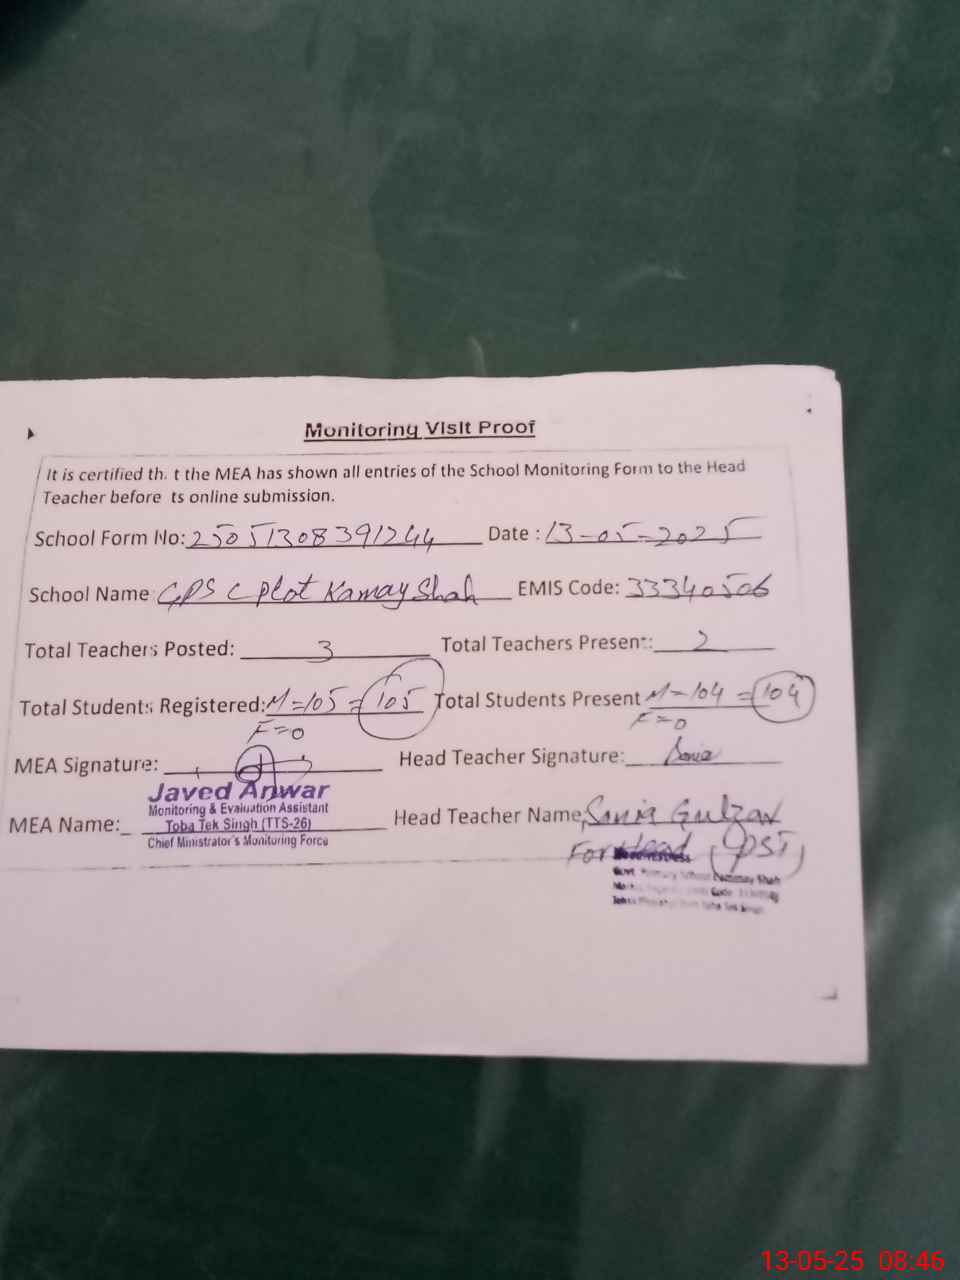 Monitoring Visit Proof
It is certified th. t the MEA has shown all entries of the School Monitoring Form to the Head
Teacher before ts online submission.
School Form No: 25051308391244 Date : 13-05-2025
School Name GPS C Plot Kamay Shah EMIS Code: 33340506
Total Teachers Posted: 3 Total Teachers Present: 2
Total Students Registered: M=105 = 105 Total Students Present M=104 = 104
F=0 F=0
MEA Signature: Head Teacher Signature: Sonia
Javed Anwar
Monitoring & Evaluation Assistant
MEA Name: Toba Tek Singh (TTS-26) Head Teacher Name Sonia Gulzar
Chief Ministrator's Monitoring Force
For Head (PST)
Govt. Primary School Kammay Shah
13-05-25 08:46